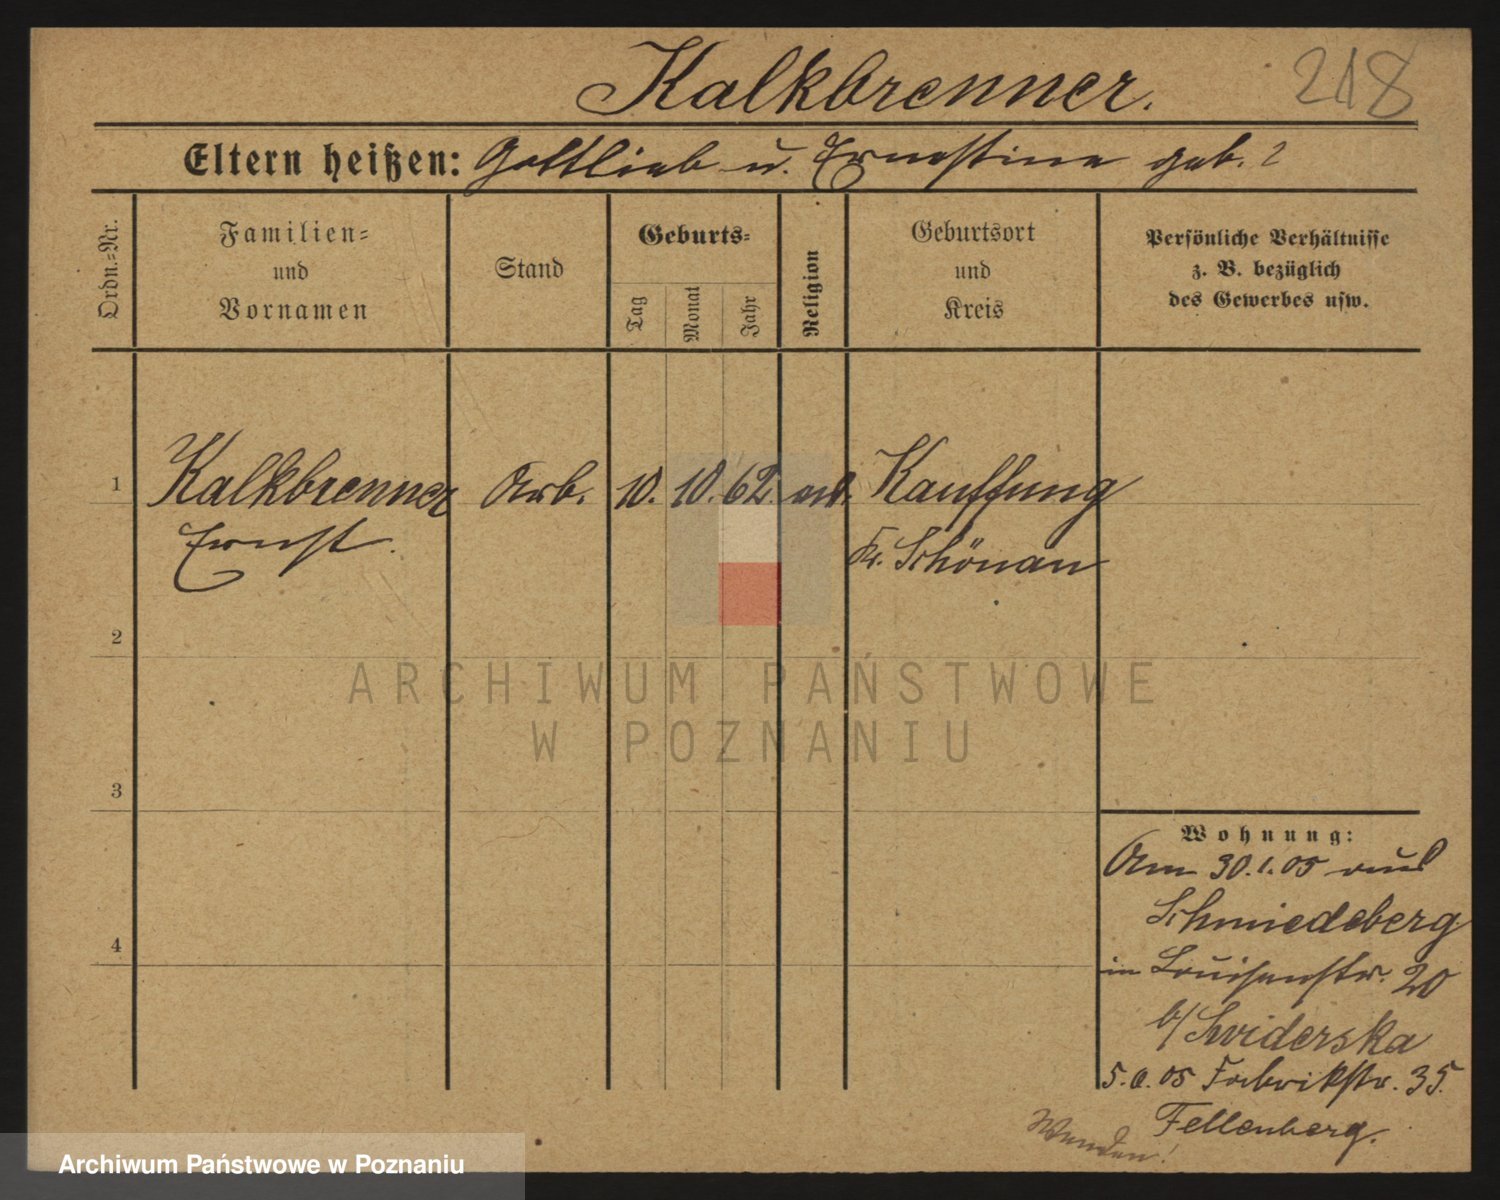 Kalkbrenner. 218
Eltern heißen: Gottlieb u. Ernestine geb. ?
Ordn.-Nr.
Familien-
und
Vornamen
Stand
Geburts-
Tag
Monat
Jahr
Religion
Geburtsort
und
Kreis
Persönliche Verhältnisse
z. B. bezüglich
des Gewerbes usw.
1 Kalkbrenner Arb. 10. 10. 62. Kauffung
Ernst. Kr. Schönau
2
3
4
Wohnung:
Am 30.1.05 aus
Schmiedeberg
in Louisenstr. 20
b/ Swiderska
5. 05 Fabrikstr. 35.
Fellenberg.
Wenden!
ARCHIWUM PAŃSTWOWE
W POZNANIU
Archiwum Państwowe w Poznaniu